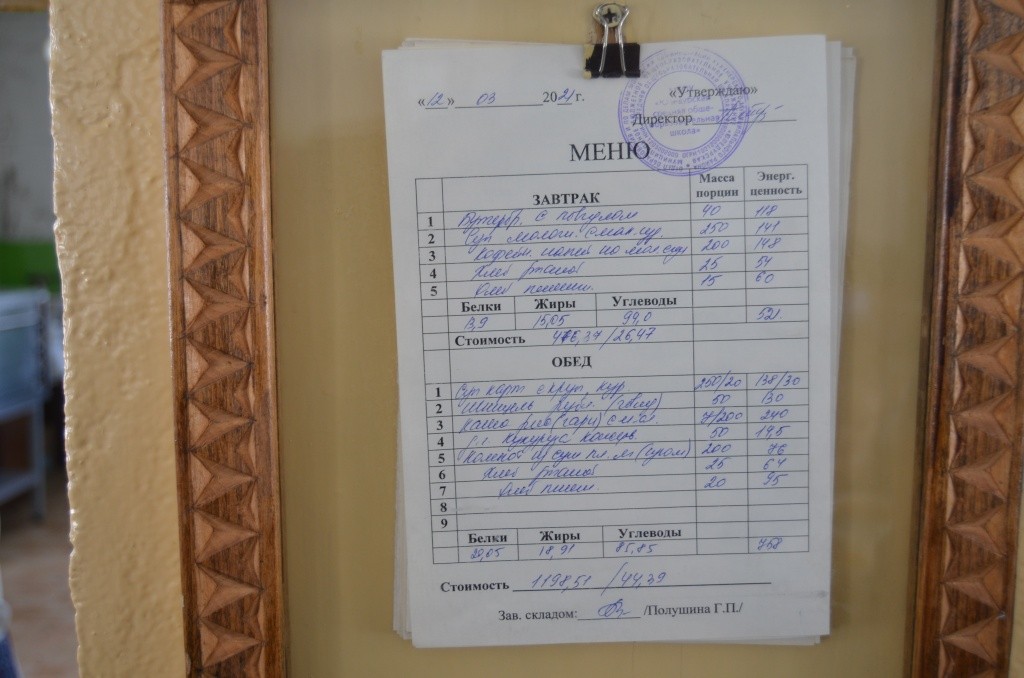 «12» 03 2021г. «Утверждаю»
Директор
школа»
МЕНЮ
ЗАВТРАК Масса порции Энерг. ценность
1 Бутерб. с повидлом 40 118
2 Суп молочн. с мак. 250 141
3 Кофейн. напит. на мол. 200 148
4 Хлеб ржаной 25 54
5 Хлеб пшен. 15 60
Белки Жиры Углеводы
13,9 15,05 99,0 521.
Стоимость 26,47
ОБЕД
1 Суп карт с круп. кур. 250/20 138/30
2 Шницель 50 130
3 рис (гарн) с м. 7/200 240
4 кукуруз консерв. 50 19,5
5 Компот из сух 200 76
6 Хлеб ржаной 25 64
7 Хлеб пшен. 20 95
8
9
Белки Жиры Углеводы
20,05 18,91 85,85 768
Стоимость 1198,51 /44,39
Зав. складом: /Полушина Г.П./